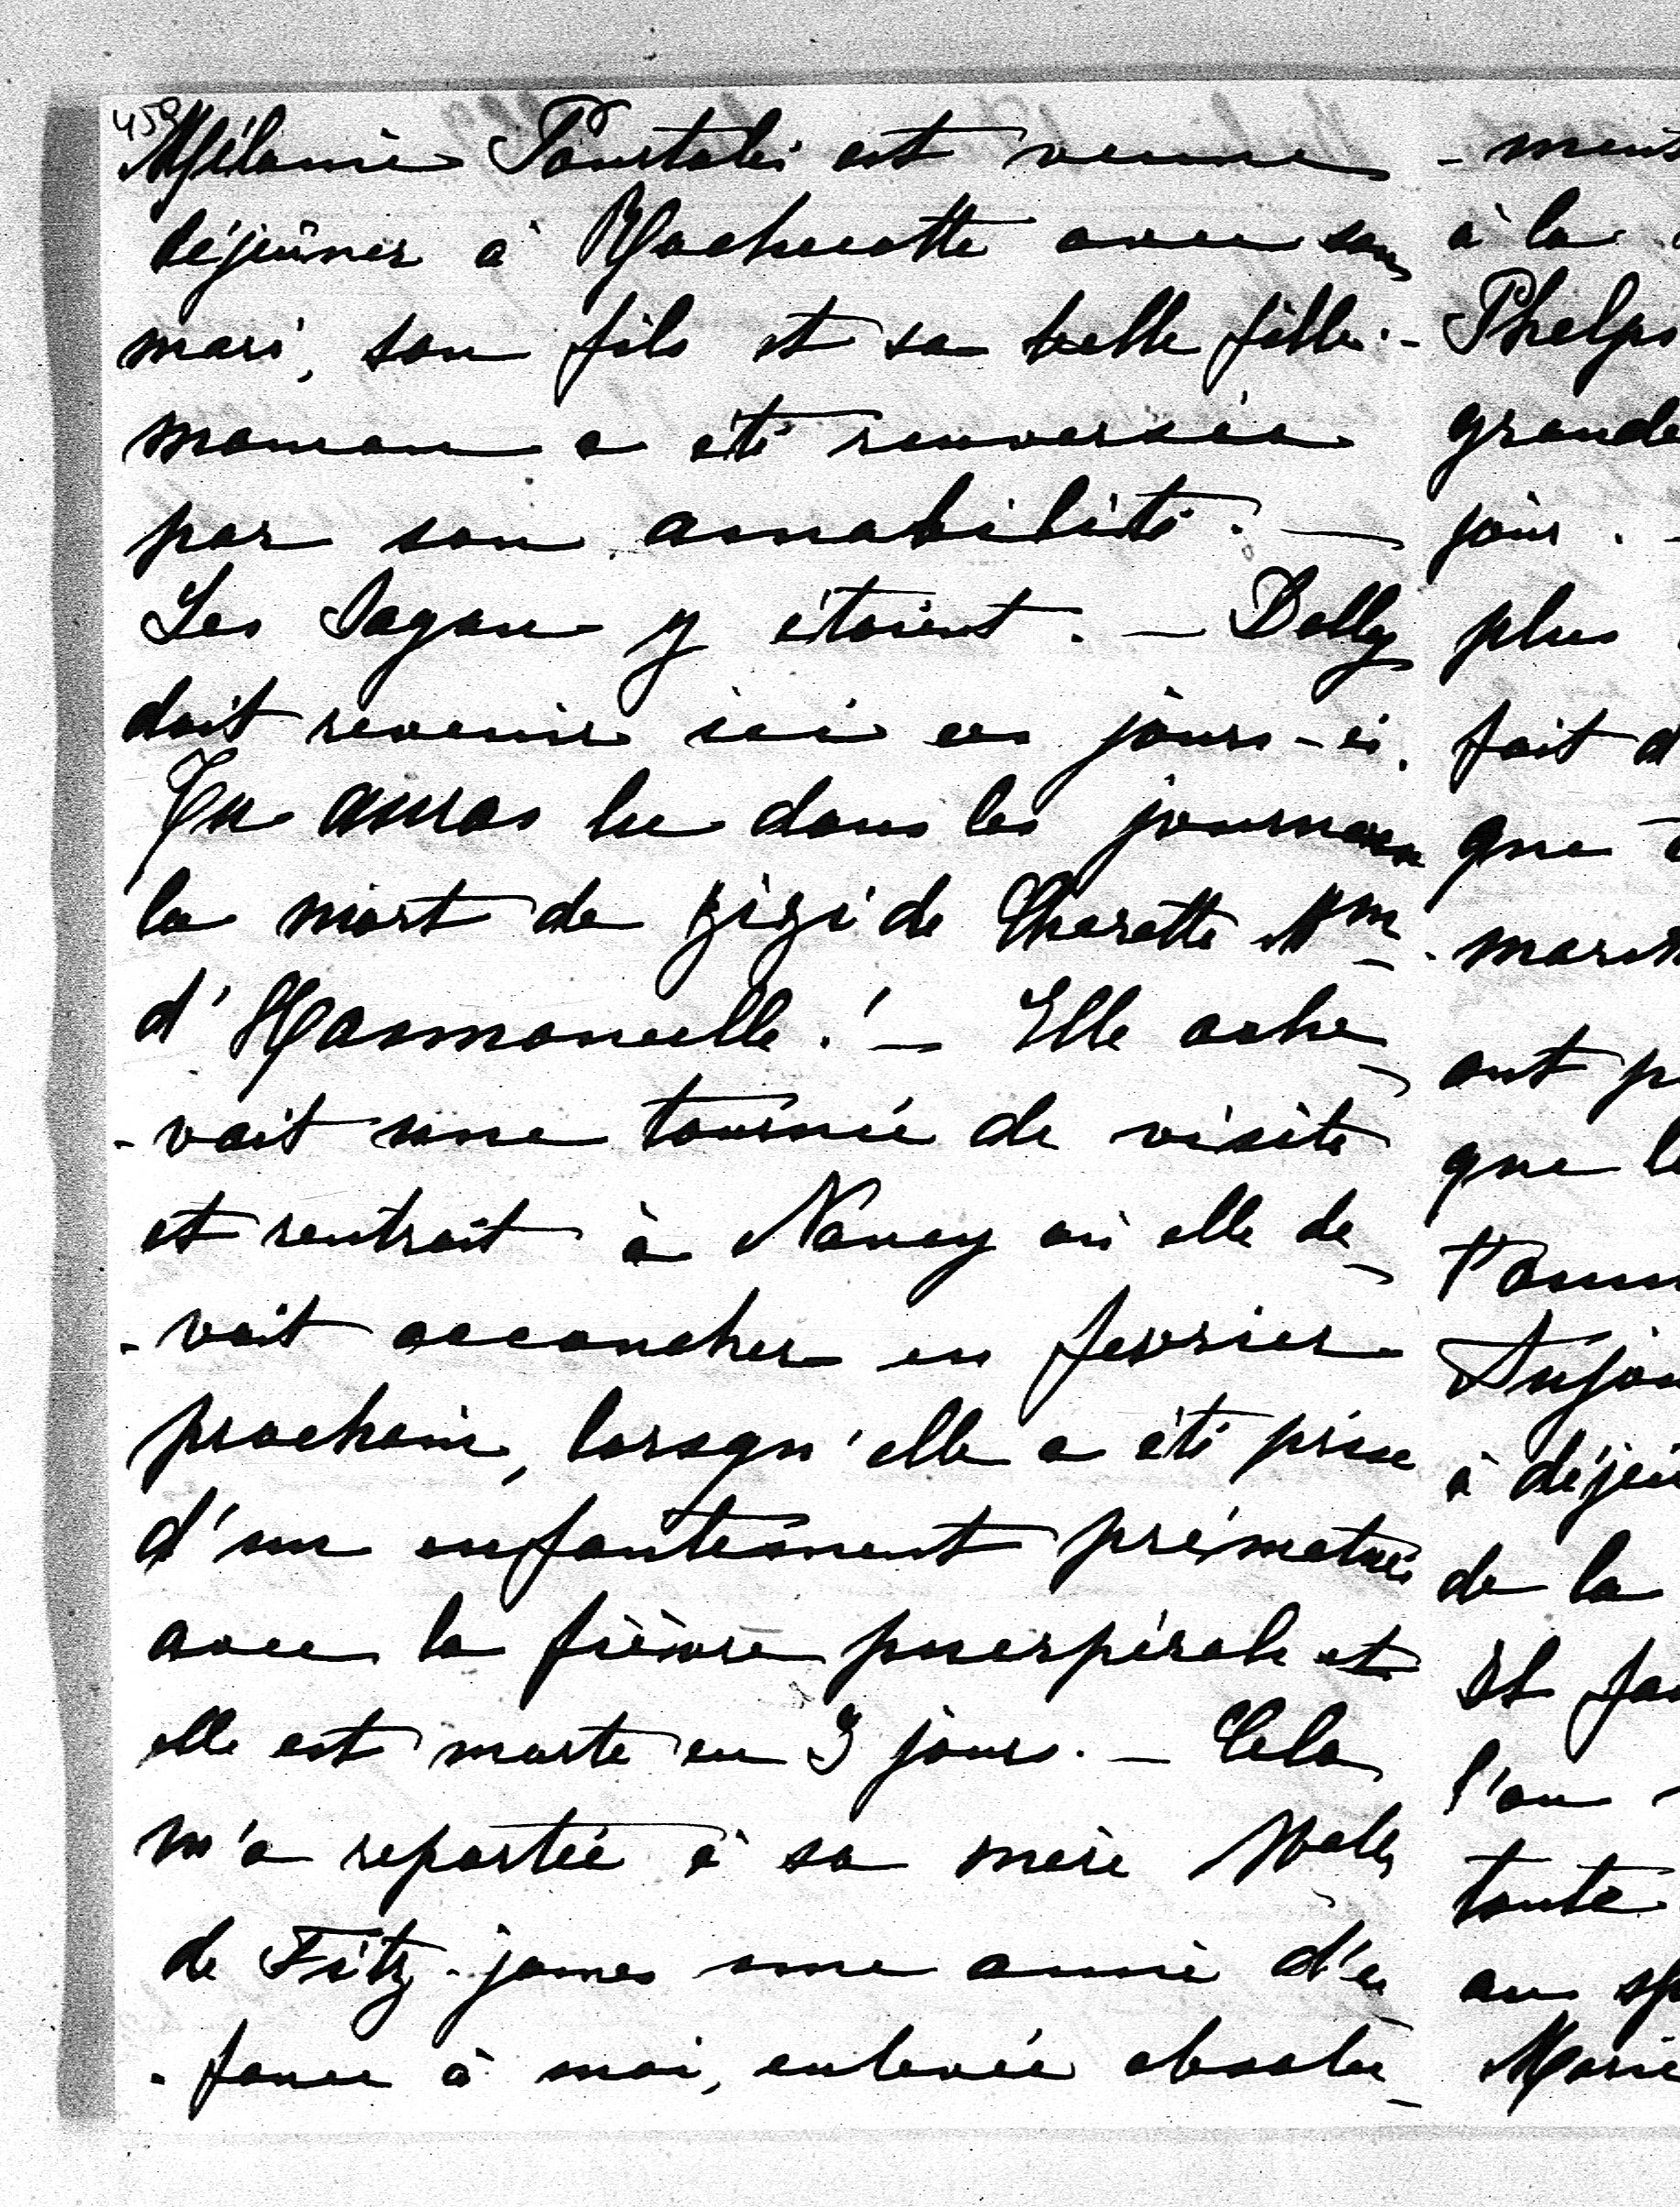 459
Mélanie Pourtales est venue
déjeûner à Rochecotte avec son
mari, son fils et sa belle fille. -
maman a été renversée
par son amabilité. —
Les Sagan y étaient. — Dolly
doit revenir ici ces jours-ci.
Tu auras lu dans les journaux
la mort de Zizi de Charette Mme
d'Harmonville ! — Elle ache
-vait une tournée de visite
et rentrait à Nancy où elle de
-vait accoucher en fevrier
prochain, lorsqu'elle a été prise
d'un enfantement prématuré
avec la fièvre puerpérale et
elle est morte en 3 jours. — Cela
m'a reportée à sa mère
de Fitz-james une amie d'en
-fance à moi, enlevée absolu-
-ment
à la
Phelps
grande
jour. -
plus
fait d
que
ont p
que l
t'ann
Aujou
à déjeû
de la
Il fau
l'on
toute
au sp
Marie